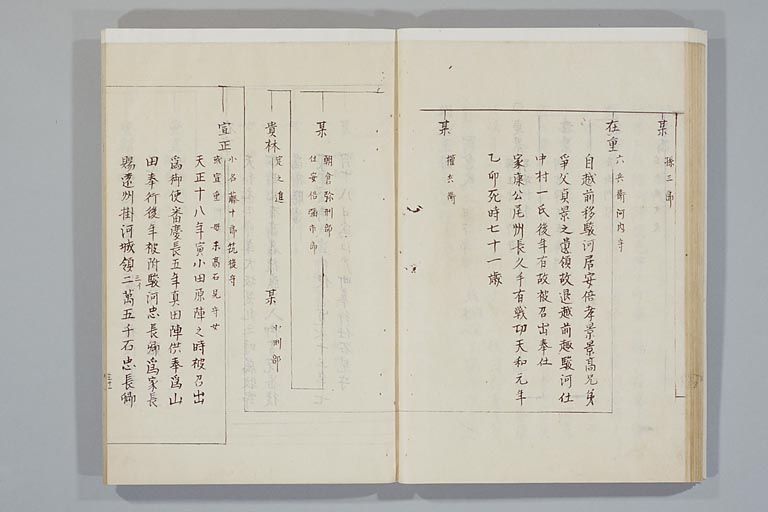 某
孫三郎
在重
六兵衛河内守
自越前移駿河居安倍孝景景高兄弟
爭父貞景之遺領故退越前趣駿河仕
中村一氏後年有故被召出奉仕
家康公尾州長久手有戦功天和元年
乙卯死時七十一歳
某
權兵衛
某
朝倉弥刑部
仕安倍彌市郎
貴林
定之進
某
小刑部
宣正
小名藤十郎筑後守
或宣重 母末高石見守女
天正十八年寅小田原陣之時被召出
爲御使番慶長五年真田陣供奉爲山
田奉行後年被附駿河忠長卿爲家長
賜遠州掛河城領二萬五千石忠長卿